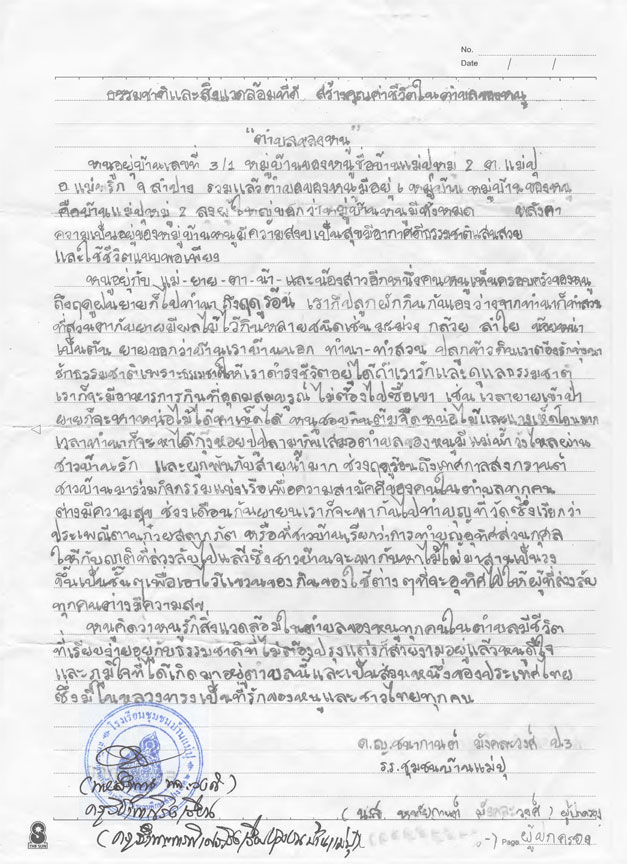 No.
Date / /
ธรรมชาติและสิ่งแวดล้อมที่ดี สร้างคุณค่าชีวิตในตำบลของหนู
"ตำบลของหนู"
หนูอยู่บ้านเลขที่ 3/1 หมู่บ้านของหนูชื่อบ้านแม่ปุหมู่ 2 ต.แม่ปุ
อ.แม่พริก จ.ลำปาง รวมแล้วตำบลของหนูมีอยู่ 6 หมู่บ้าน หมู่บ้านของหนู
คือบ้านแม่ปุหมู่ 2 ลุงผู้ใหญ่บอกว่าหมู่บ้านหนูมีทั้งหมด หลังคา
ความเป็นอยู่ของหมู่บ้านหนูมีความสงบเป็นสุขมีอากาศดีธรรมชาติแสนสวย
และใช้ชีวิตแบบพอเพียง
หนูอยู่กับ แม่-ยาย-ตา-น้า-และน้องสาวอีกหนึ่งคนหนูเห็นครอบครัวของหนู
ถึงฤดูฝนยายก็ไปทำนา ถึงฤดูร้อน เราก็ปลูกผักกินกันเอง ว่างจากทำนาก็ทำสวน
ที่สวนตากับยายมีผลไม้ไว้กินหลายชนิดเช่น มะม่วง กล้วย ลำไย น้อยหน่า
เป็นต้น ยายบอกว่าบ้านเราบ้านนอก ทำนา-ทำสวน ปลูกข้าวกินเราต้องรักทุ่งนา
รักธรรมชาติเพราะธรรมชาติให้เราดำรงชีวิตอยู่ได้ถ้าเรารักและดูแลธรรมชาติ
เราก็จะมีอาหารการกินที่อุดมสมบูรณ์ ไม่ต้องไปซื้อเขา เช่น เวลายายเข้าป่า
ยายก็จะหาหน่อไม้ได้หาเห็ดได้ หนูชอบกินต้มจืดหน่อไม้และแกงเห็ดโคนมาก
เวลาทำนาก็จะหาได้กุ้งหอยปูปลามากินเสมอตำบลของหนูมีแม่น้ำวังไหลผ่าน
ชาวบ้านรัก และผูกพันกับสายน้ำมาก ช่วงฤดูร้อนถึงเทศกาลสงกรานต์
ชาวบ้านมาร่วมกิจกรรมแข่งเรือเพื่อความสามัคคีของคนในตำบลทุกคน
ต่างมีความสุข ช่วงเดือนกันยายนเราก็จะพากันไปทำบุญที่วัดซึ่งเรียกว่า
ประเพณีตานก๋วยสลากภัต หรือที่ชาวบ้านเรียกว่าการทำบุญอุทิศส่วนกุศล
ให้กับญาติที่ล่วงลับไปแล้วซึ่งชาวบ้านจะพากันหาไม้ไผ่มาสานเป็นวง
ขึ้นเป็นชั้นๆเพื่อเอาไว้แขวนของกินของใช้ต่างๆที่จะอุทิศไปให้ผู้ที่ล่วงลับ
ทุกคนต่างมีความสุข
หนูคิดว่าหนูรักสิ่งแวดล้อมในตำบลของหนูทุกคนในตำบลมีชีวิต
ที่เรียบง่ายอยู่กับธรรมชาติที่ไม่ต้องปรุงแต่งก็สวยงามอยู่แล้วหนูดีใจ
และภูมิใจที่ได้เกิดมาอยู่ตำบลนี้และเป็นส่วนหนึ่งของประเทศไทย
ซึ่งมีในหลวงทรงเป็นที่รักของหนูและชาวไทยทุกคน
ด.ญ.ชนากานต์ มังคละวงศ์ ป.3
ร.ร.ชุมชนบ้านแม่ปุ
โรงเรียนชุมชนบ้านแม่ปุ
(น.ส. มังคละวงศ์) ผู้ปกครอง
Page ผู้ปกครอง